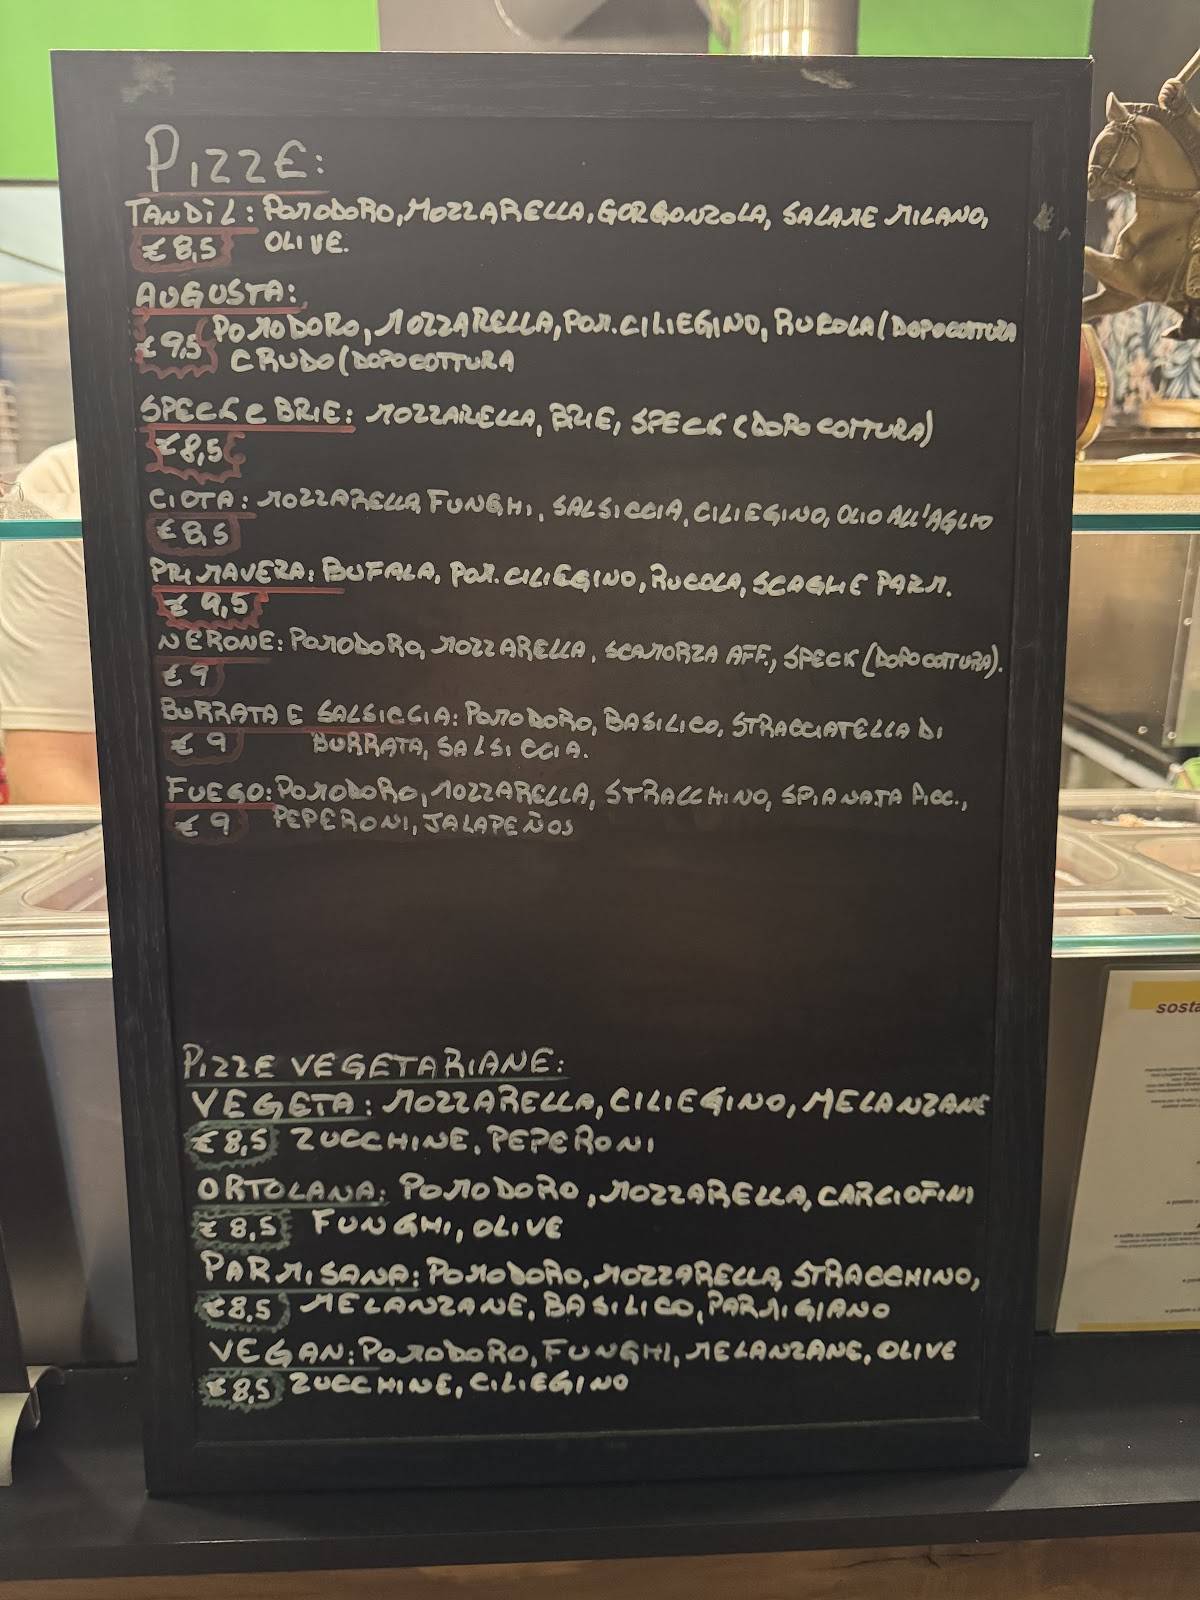 PIZZE:
TANDIL: POMODORO, MOZZARELLA, GORGONZOLA, SALAME MILANO,
€ 8,5 OLIVE.
AUGUSTA:
€ 9,5 POMODORO, MOZZARELLA, POM. CILIEGINO, RUCOLA (DOPO COTTURA
CRUDO (DOPO COTTURA
SPECK E BRIE: MOZZARELLA, BRIE, SPECK (DOPO COTTURA)
€ 8,5
CIOTA: MOZZARELLA, FUNGHI, SALSICCIA, CILIEGINO, OLIO ALL'AGLIO
€ 8,5
PRIMAVERA: BUFALA, POM. CILIEGINO, RUCOLA, SCAGLIE PARM.
€ 9,5
NERONE: POMODORO, MOZZARELLA, SCAMORZA AFF., SPECK (DOPO COTTURA).
€ 9
BURRATA E SALSICCIA: POMODORO, BASILICO, STRACCIATELLA DI
€ 9 BURRATA, SALSICCIA.
FUEGO: POMODORO, MOZZARELLA, STRACCHINO, SPIANATA PICC.,
€ 9 PEPERONI, JALAPEÑOS
PIZZE VEGETARIANE:
VEGETA: MOZZARELLA, CILIEGINO, MELANZANE
€ 8,5 ZUCCHINE, PEPERONI
ORTOLANA: POMODORO, MOZZARELLA, CARCIOFINI
€ 8,5 FUNGHI, OLIVE
PARMISANA: POMODORO, MOZZARELLA, STRACCHINO,
€ 8,5 MELANZANE, BASILICO, PARMIGIANO
VEGAN: POMODORO, FUNGHI, MELANZANE, OLIVE
€ 8,5 ZUCCHINE, CILIEGINO